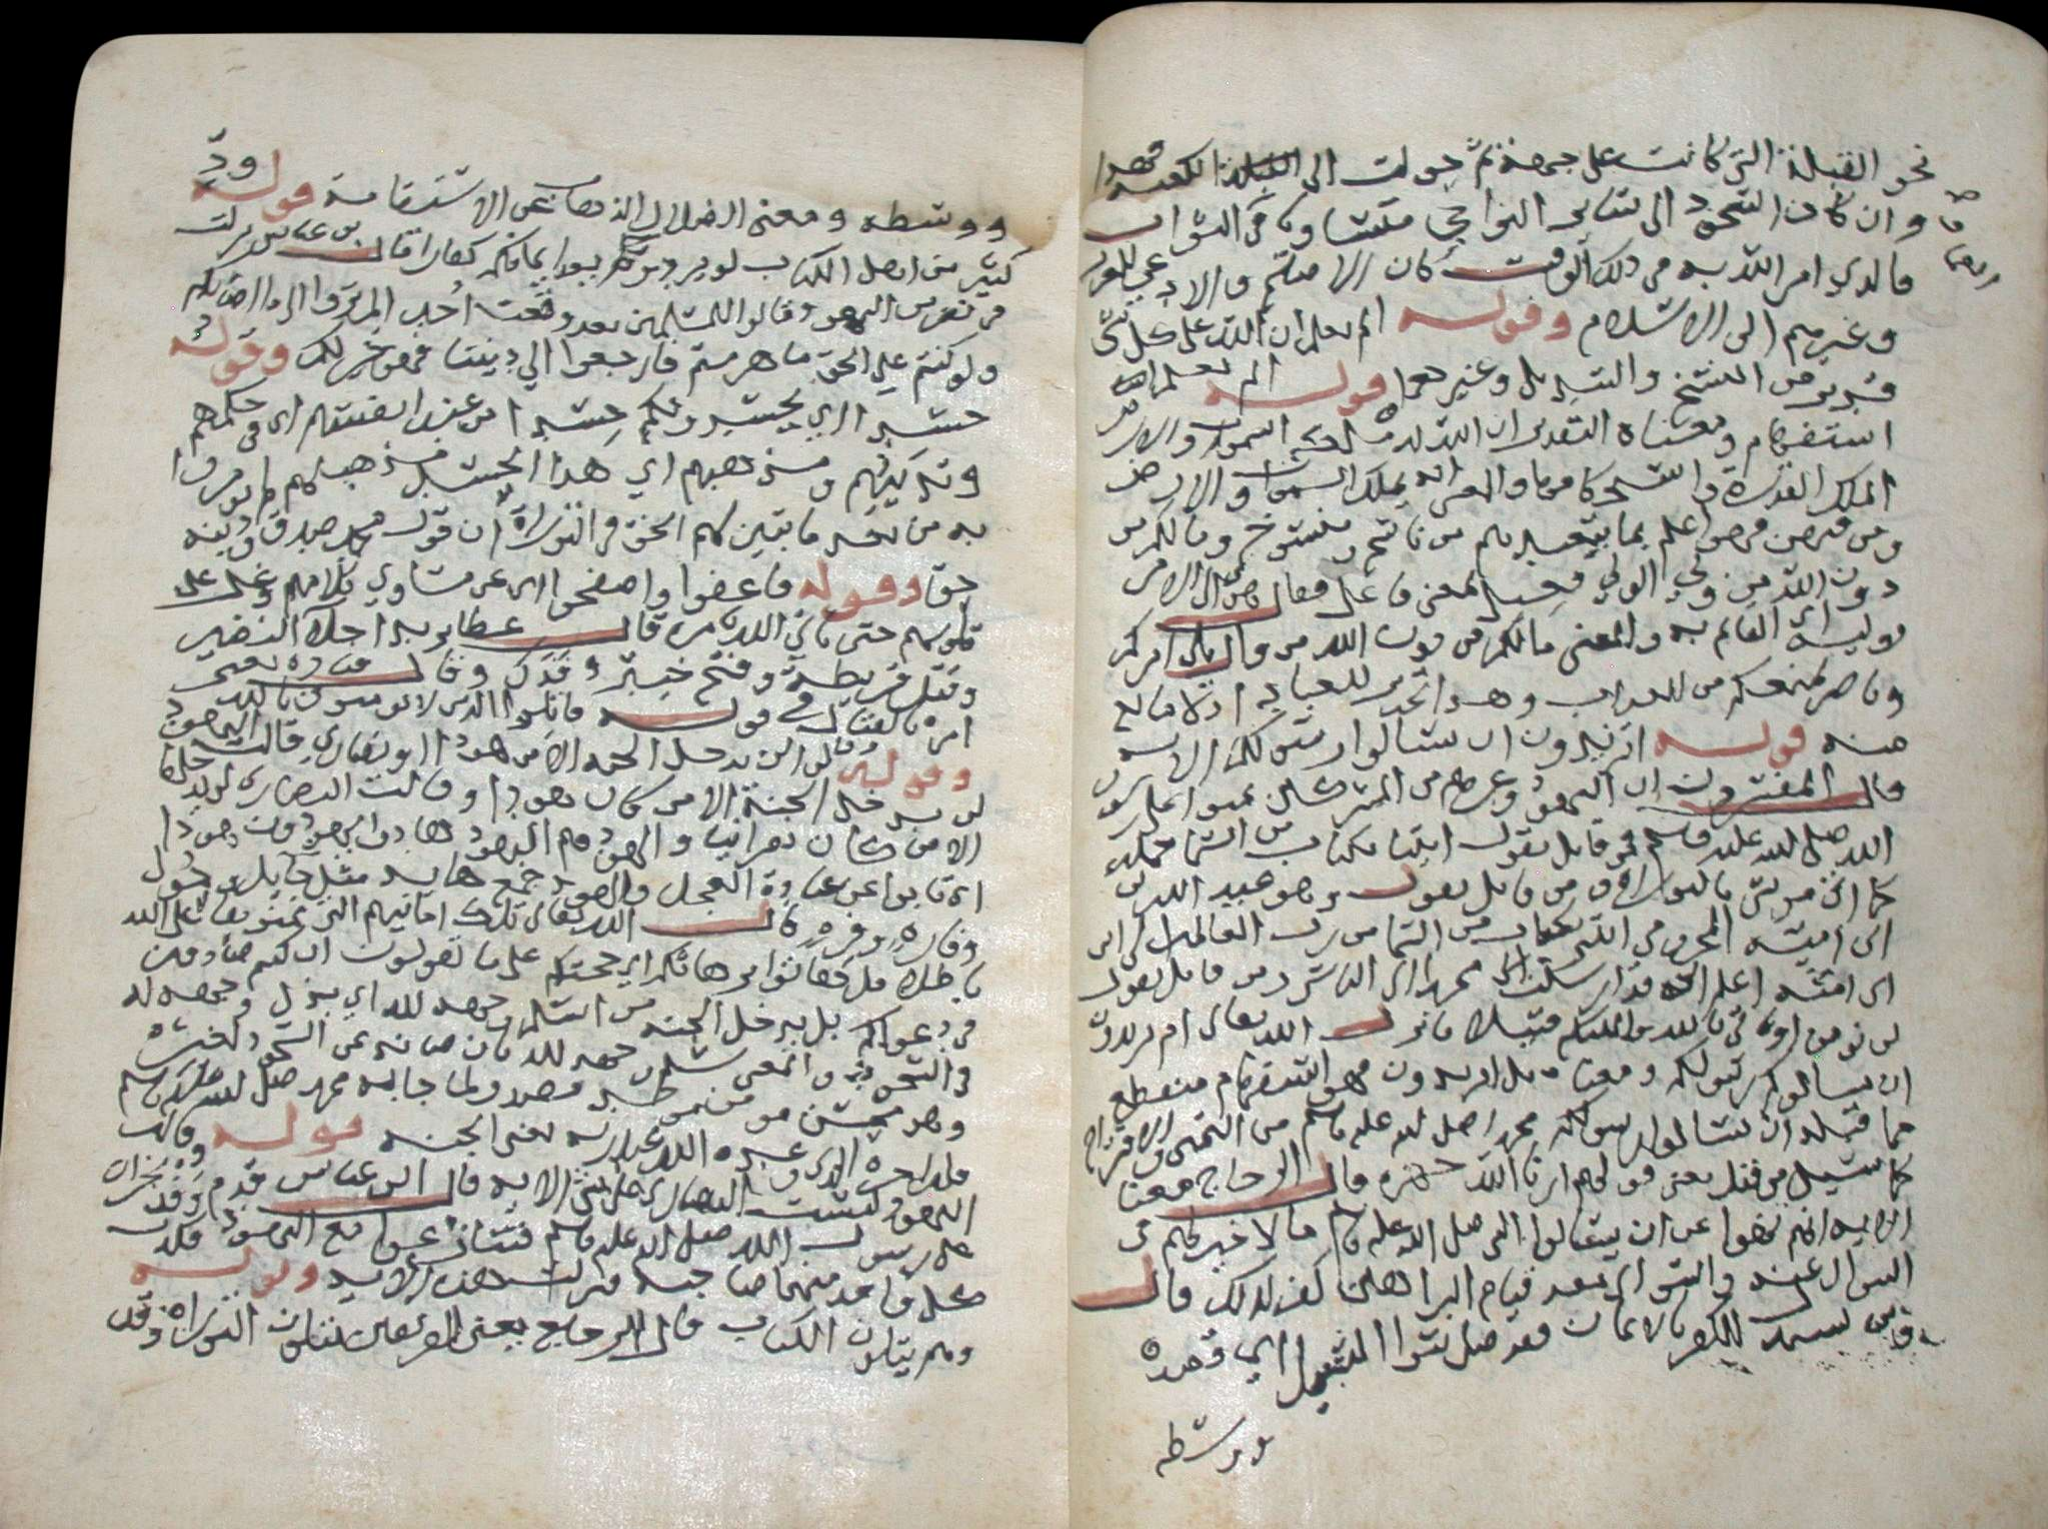 نحو القبلة التي كانت على جهة ثم حولت الى الكعبة فهذا
وان كان التحول الى سائر النواحي متساويا في الثواب
فالذي امر الله به في ذلك الوقت كان الاصلح والادعى للعرب
وغيرهم الى الاسلام وقوله الم تعلم ان الله على كل شي
قدير من النسخ والتبديل وغيرهما قوله الم تعلم ان
استفهام ومعناه التقدير ان الله له ملك السموات والارض
الملك القدرة والمعنى انه يملك السموات والارض
ومن فيهن وهو اعلم بما يتعبدهم من ناسخ ومنسوخ ومالكم من
دون الله من ولي الولي فعيل بمعنى فاعل من والي الامر
وليه اي القائم به والمعنى مالكم من دون الله من وال يلي امركم
وناصر يمنعكم من العذاب وهو تحذير للعباد اذ لا مانع
منه قوله ام تريدون ان تسالوا رسولكم الاية
قال المفسرون ان اليهود وغيرهم من المشركين تمنوا على رسول
الله صلى الله عليه وسلم فمن قايل يقول ايتنا بكتاب من السما جملة
كما اتى موسى بالتوراة ومن قايل يقول وهو عبد الله بن
ابي امية المخزومي ايتني بكتاب من السما من رب العالمين الى ابن
ابي امية اعلم اني قد ارسلت محمدا الى الناس ومن قايل يقول
لن نومن او تاتي بالله والملائكة قبيلا فانزل الله تعالى ام تريدون
ان تسالوا رسولكم ومعناه بل اتريدون فهو استفهام منقطع
عما قبله ان تسالوا رسولكم محمدا صلى الله عليه وسلم
كما سيل موسى من قبل يعني قولهم ارنا الله جهرة قال الزجاج معنى
الاية انهم نهوا عن ان يسالوا النبي صلى الله عليه وسلم ما لا خير لهم في
السوال عنه والسوال بعد قيام البراهين كفر لذلك قال
ومن يتبدل الكفر بالايمان فقد ضل سوا السبيل اي قصده
ووسطه
ووسطه ومعنى الضلال الذهاب عن الاستقامة قوله ود
كثير من اهل الكتاب لو يردونكم من بعد ايمانكم كفارا قال بن عباس نزلت
في نفر من اليهود قالوا للمسلمين بعد وقعت احد الم تروا الى ما اصابكم
ولو كنتم على الحق ما هزمتم فارجعوا الى ديننا فهو خير لكم وقوله
حسدا اي يحسدونكم حسدا من عند انفسهم اي في حكمهم
وتدينهم ومذهبهم اي هذا الحسد مذهب لهم لم يومروا
به من بعد ما تبين لهم الحق في التوراة ان قول محمد صدق ودينه
حق وقوله فاعفوا واصفحوا اي عن مساوي كلامهم وغل
قلوبهم حتى ياتي الله بامره قال عطا يريد اجلا النضير
وقتل قريظة وفتح خيبر وفدك وقال قتادة يعني
امره بالقتال في قوله قاتلوا الذين لا يومنون بالله
وقوله وقالوا لن يدخل الجنة الا من كان هودا او نصارى قالت اليهود
لن يدخل الجنة الا من كان يهوديا وقالت النصارى لن يدخلها
الا من كان نصرانيا والهود هم اليهود هادوا يهودون هودا
اي تابوا عن عبادة العجل والهود جمع هايد مثل حايل وحول
وفاره وفره قال الله تعالى تلك امانيهم التي تمنوها على الله
باطلا قل هاتوا برهانكم اي حجتكم على ما تقولون ان كنتم صادقين
في دعواكم بل يدخل الجنة من اسلم وجهه لله اي بذل وجهه له
في السجود والمعنى اسلم وجهه لله بان صانه عن السجود لغيره
وهو محسن مومن موحد مصدق لما جا به محمد صلى الله عليه وسلم
فله اجره الذي وعده الله عند ربه يعني الجنة قوله وقالت
اليهود ليست النصارى على شي الاية قال ابن عباس قدم وفد نجران
على رسول الله صلى الله عليه وسلم فتنازعوا مع اليهود فكذب
كل واحد منهما صاحبه فنزلت هذه الاية وقوله
وهم يتلون الكتاب قال الزجاج يعني الفريقين يتلون التوراة وقد